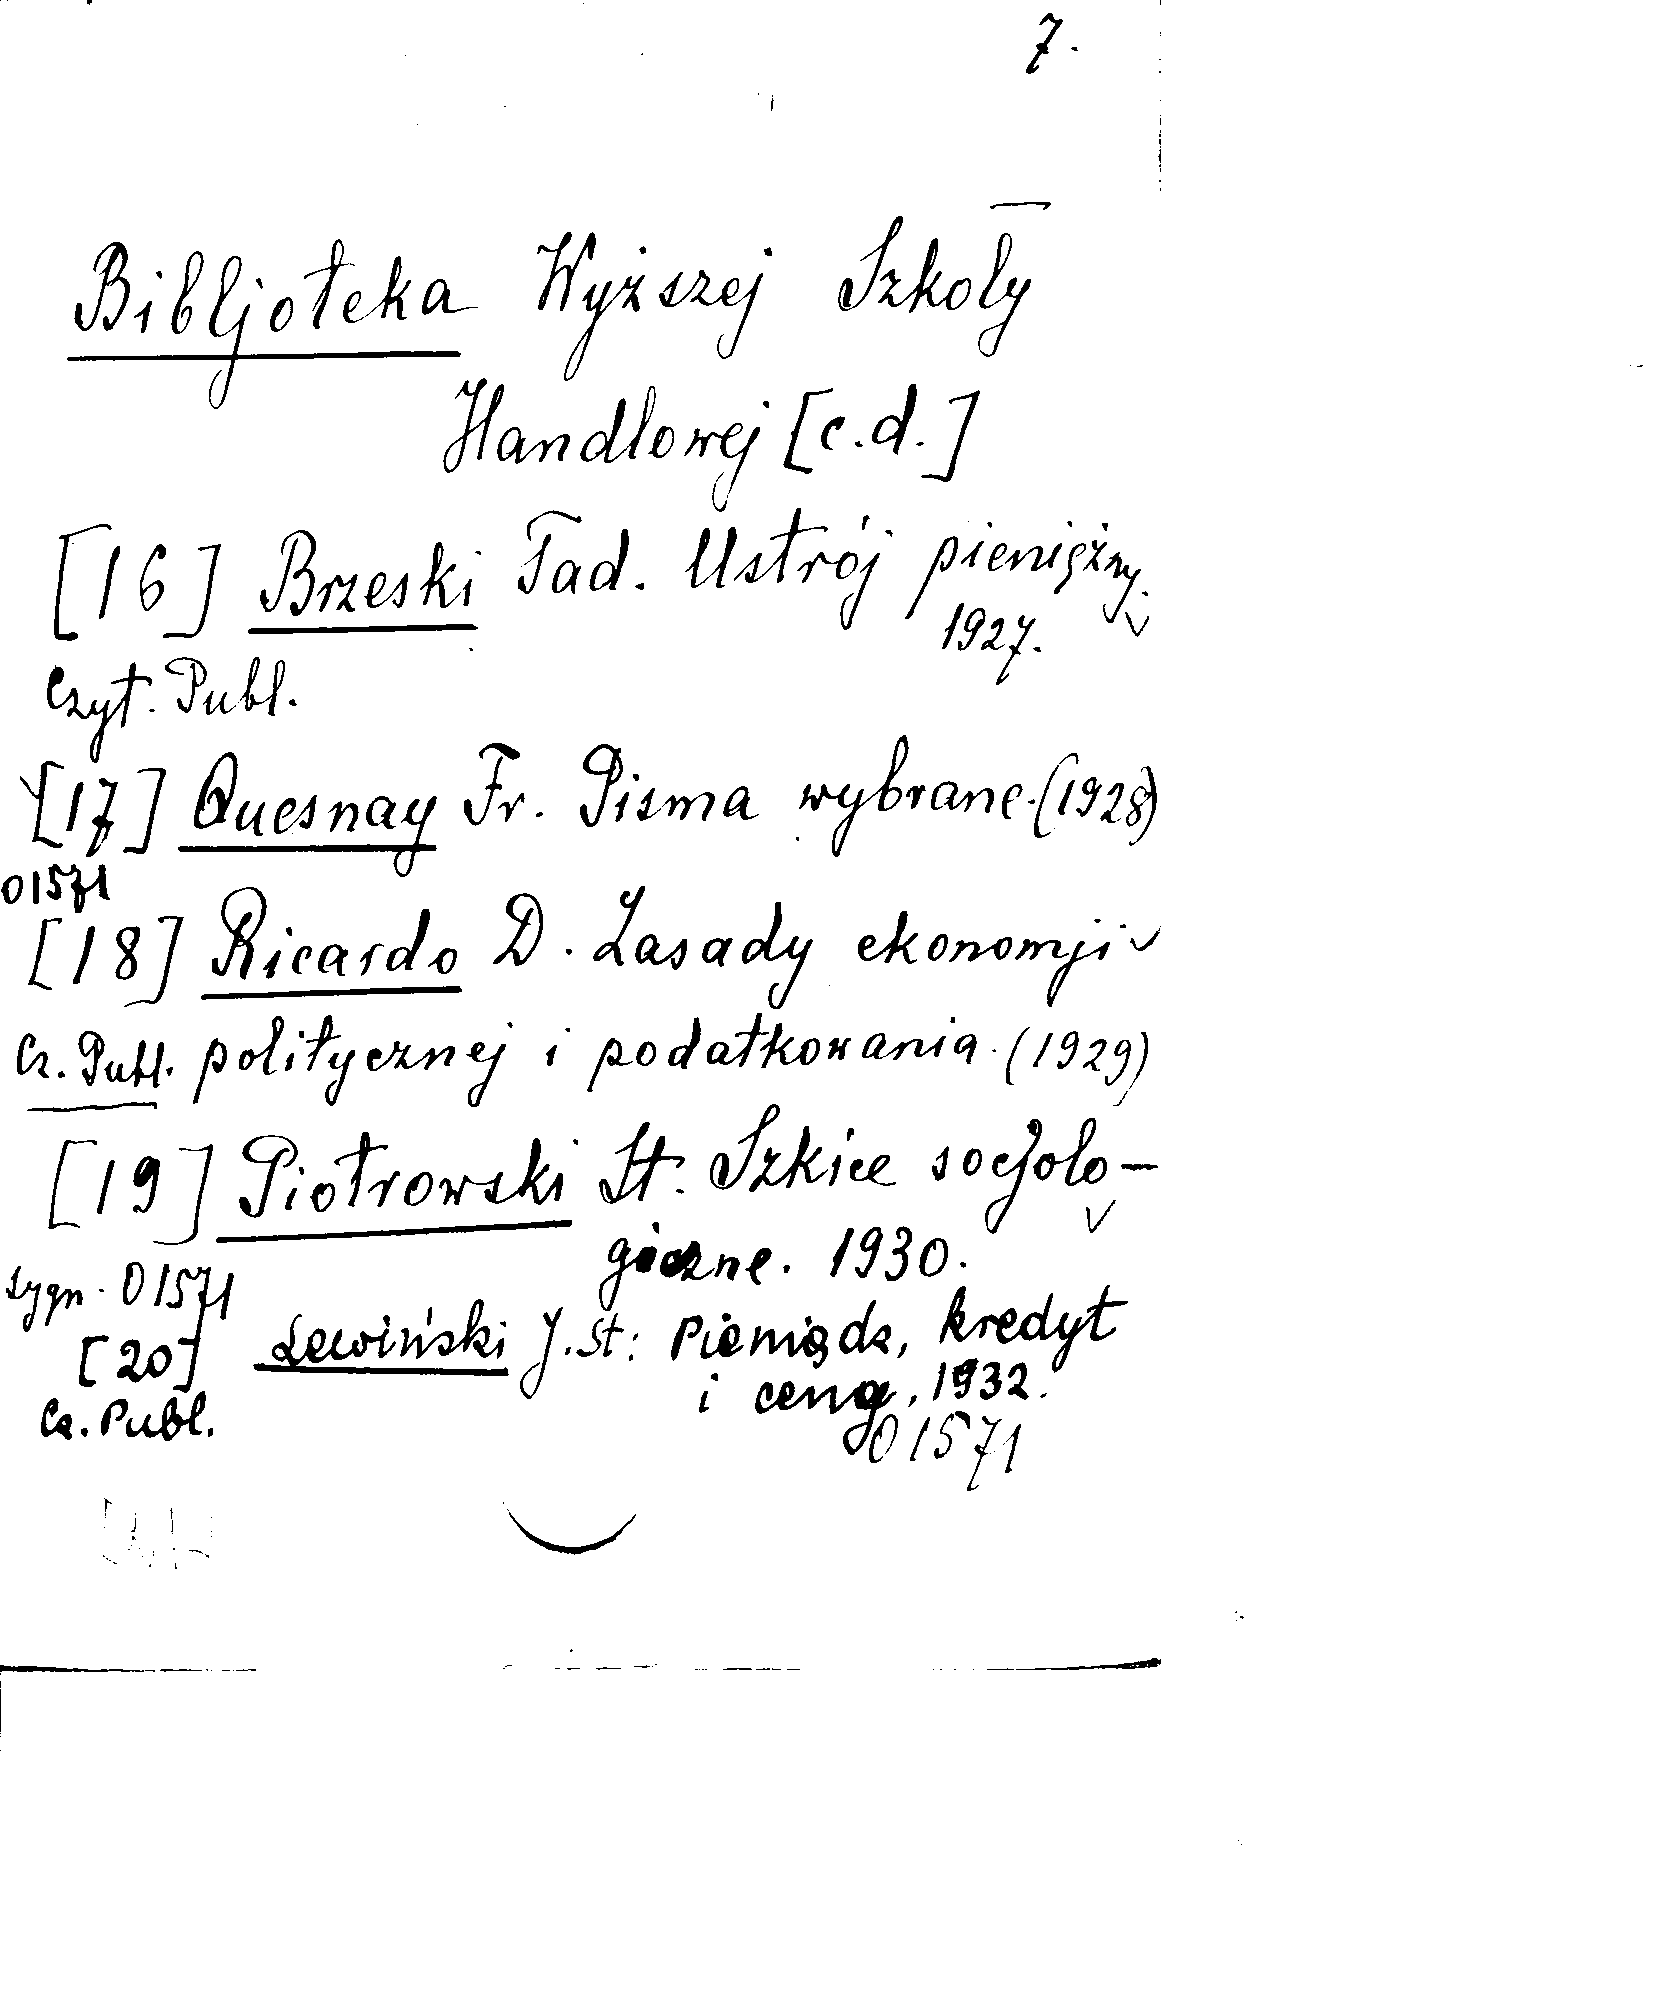 7.
Bibljoteka Wyższej Szkoły
Handlowej [c.d.]
[16] Brzeski Tad. Ustrój pieniężny.
1927.
Czyt. Publ.
[17] Quesnay Fr. Pisma wybrane. (1928)
01571
[18] Ricardo D. Zasady ekonomji
Cz. Publ. politycznej i podatkowania. (1929)
[19] Piotrowski St. Szkice socjolo-
giczne. 1930.
sygn. 01571
[20] Lewiński J. St: Pieniądz, kredyt
i ceny, 1932.
Cz. Publ.
01571